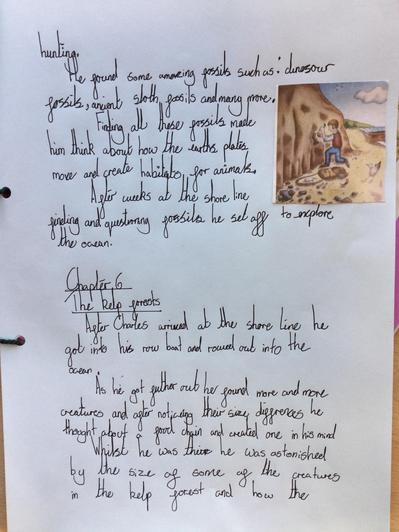 hunting.
He found some amazing fossils such as: dinosour
fossils, ancient sloth fossils and many more.
Finding all these fossils made
him think about how the earths plates
move and create habitats for animals.
After weeks at the shore line
finding and questioning fossils he set off to explore
the ocean.
Chapter 6
The kelp forests
After Charles arrived at the shore line he
got into his row boat and rowed out into the
ocean.
As he got futher out he found more and more
creatures and after noticing their size differences he
thought about a food chain and created one in his mind
Whilst he was there he was astonished
by the size of some of the creatures
in the kelp forest and how the